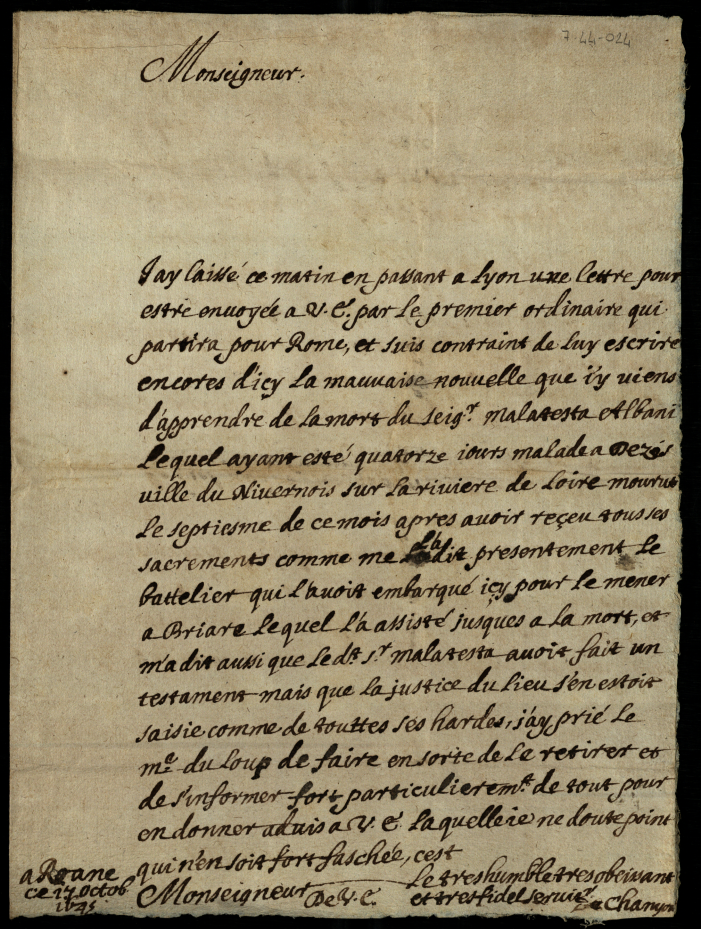 7-44-024
Monseigneur.
J'ay laissé ce matin en passant a Lyon une lettre pour
estre envoyée a V. E. par le premier ordinaire qui
partira pour Rome, et suis contraint de luy escrire
encores d'icy la mauvaise nouvelle que i'y viens
d'apprendre de la mort du seigr. malatesta Albani
Lequel ayant esté quatorze iours malade a Dezés
ville du Nivernois sur la riviere de Loire mourut
Le septiesme de ce mois apres avoir reçeu tous ses
sacrements comme me l'a dit presentement Le
battelier qui l'avoit embarqué icy pour Le mener
a Briare Lequel l'a assisté jusques a la mort, et
m'a dit aussi que Led.t s.r malatesta avoit fait un
testament mais que la justice du Lieu s'en estoit
saisie comme de touttes ses hardes, j'ay prié Le
m.e du Loup de faire en sorte de Le retirer et
de s'informer fort particulierem.t de tout pour
en donner advis a V. E. Laquelle ie ne doute point
qui n'en soit fort faschée, c'est
Monseigneur De V. E. Le tres humble tres obeissant
et tres fidel servit.r
a Roane
ce 17 octob
1645